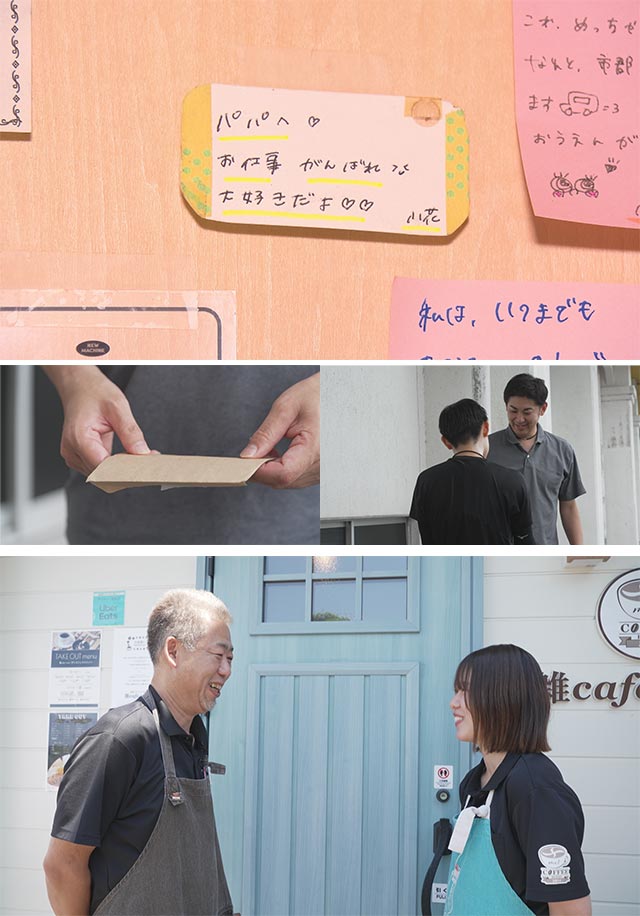 パパへ♡
お仕事 がんばれ
大好きだよ♡♡
これ、めっちゃ
なれと、
ます =3
おうえんが
私は、いつまでも
NEW
MACHINE
Uber
Eats
TAKE OUT menu
TAKE OUT
雄cafe
COFFEE
引く
PULL